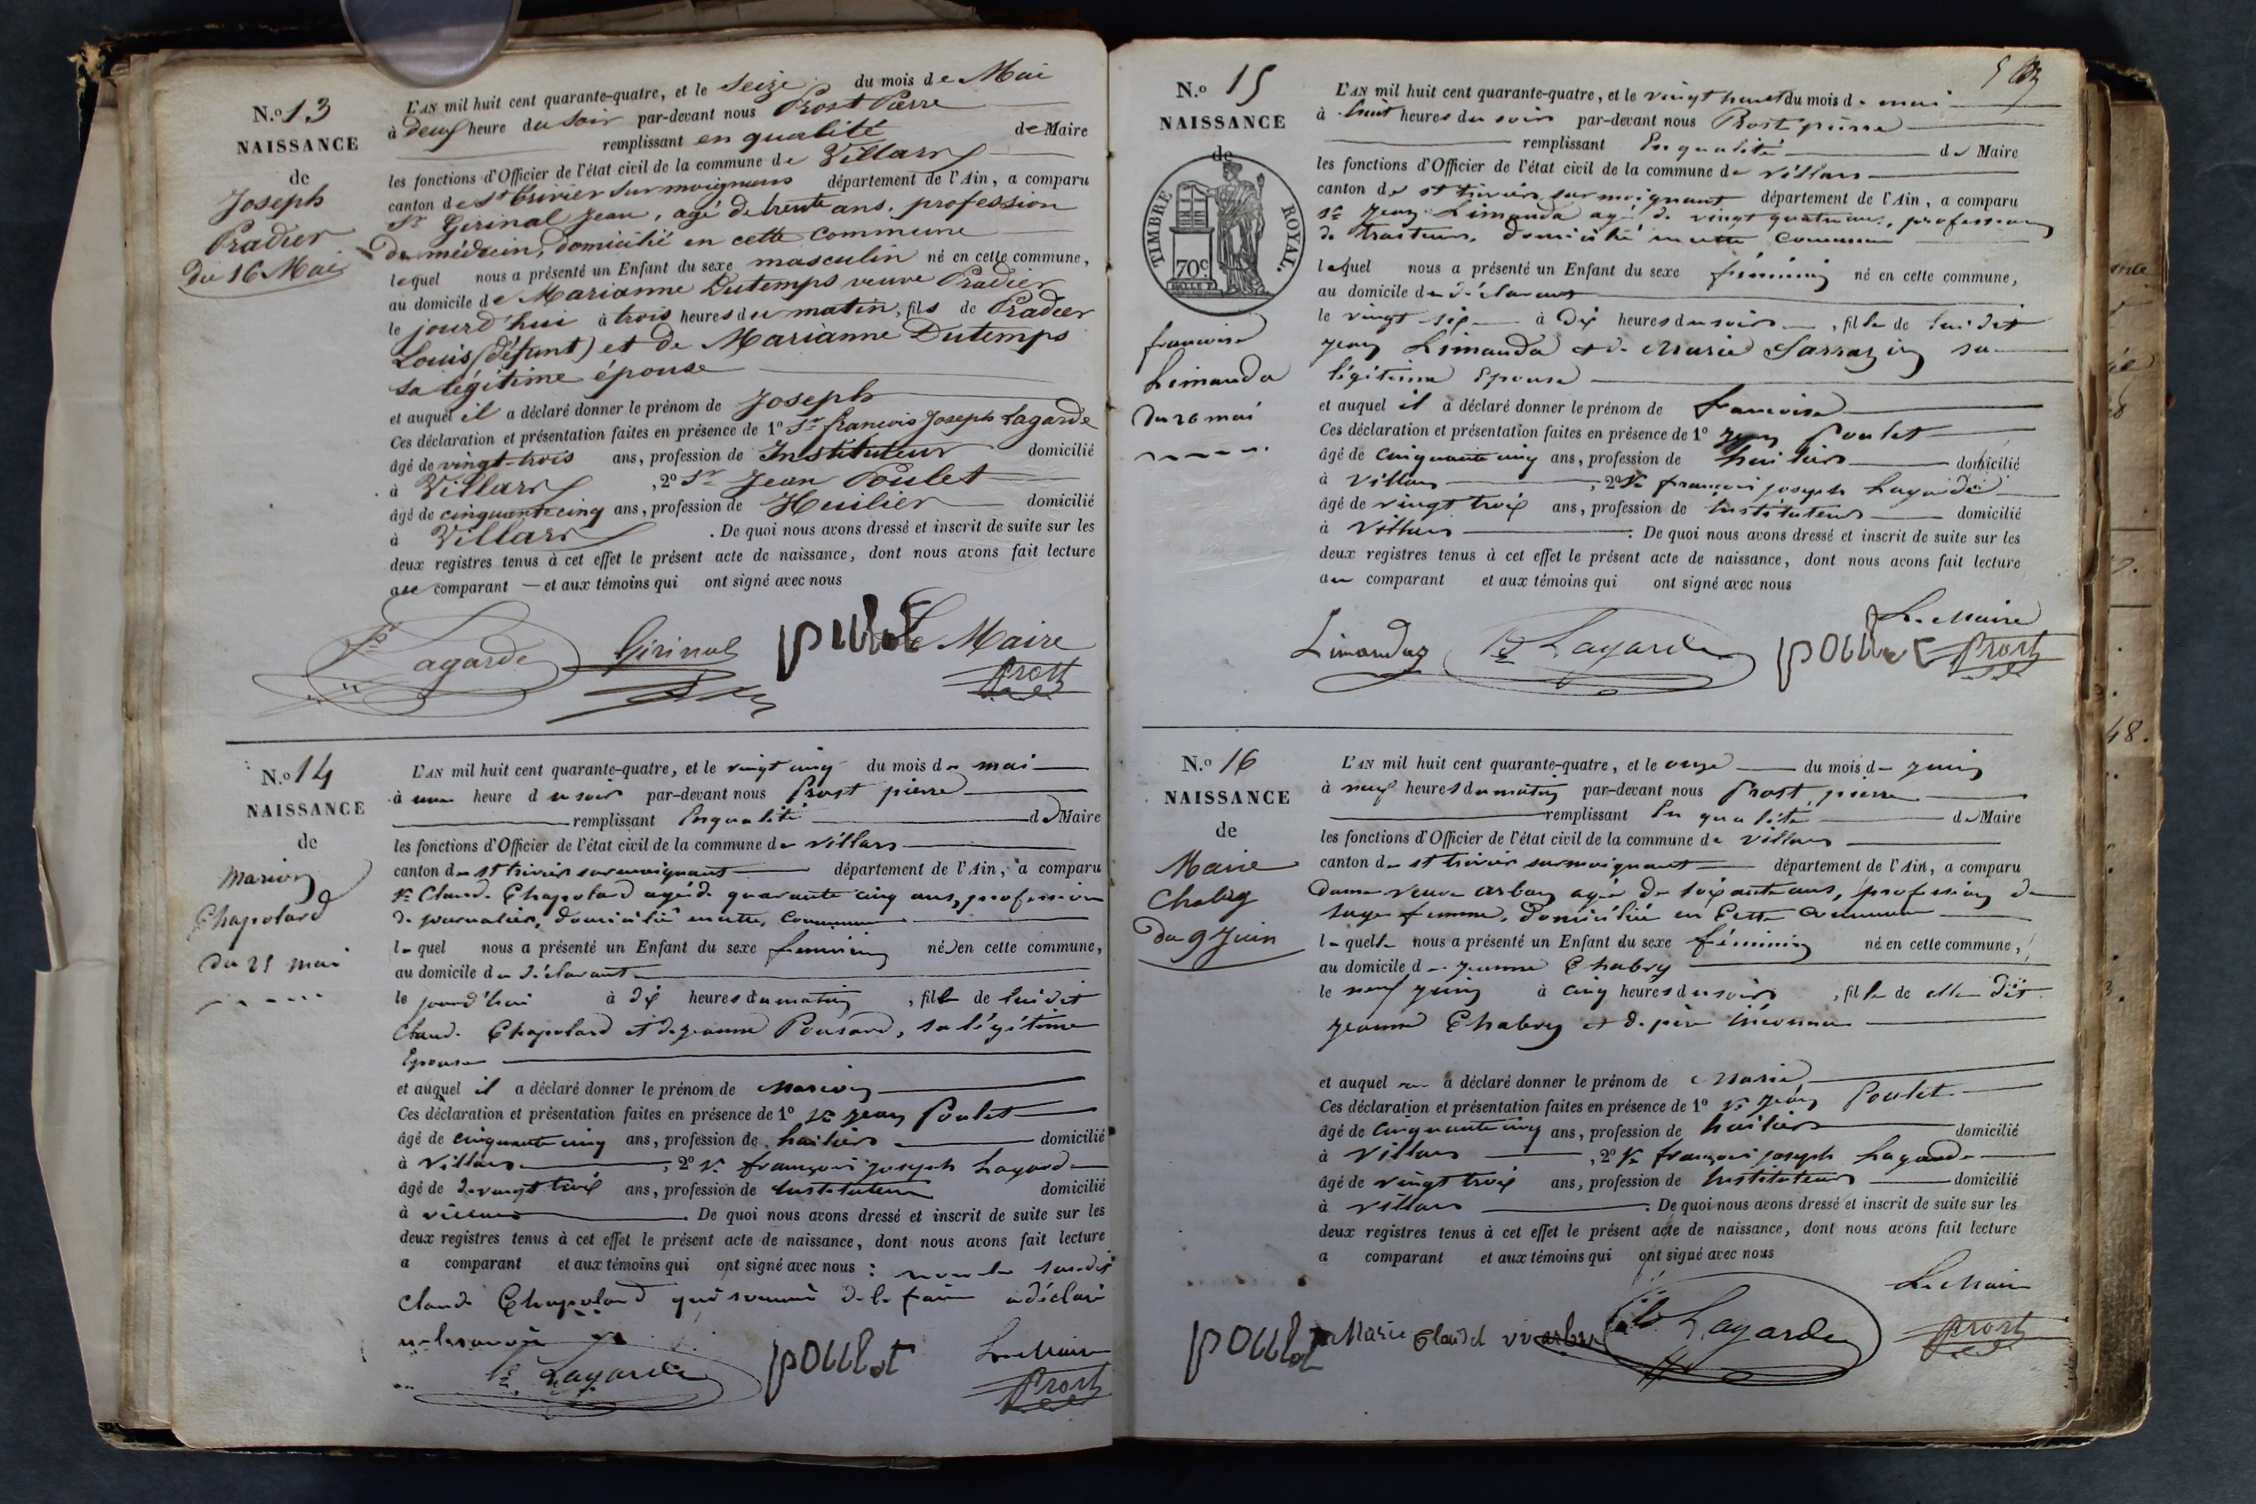 N.º 13
NAISSANCE
de
Joseph
Pradier
du 16 Mai
L'AN mil huit cent quarante-quatre, et le Seize du mois de Mai
à deux heure du soir par-devant nous Prost Pierre
remplissant en qualité de Maire
les fonctions d'Officier de l'état civil de la commune de Villars
canton de St Trivier sur moignans département de l'Ain, a comparu
Sr Girinal Jean, agé de trente ans, profession
de médecin, domicilié en cette commune
lequel nous a présenté un Enfant du sexe masculin né en cette commune,
au domicile de Marianne Dutemps veuve Pradier
le jourd'hui à trois heures du matin, fils de Pradier
Louis (défunt) et de Marianne Dutemps
sa légitime épouse
et auquel il a déclaré donner le prénom de Joseph
Ces déclaration et présentation faites en présence de 1º Sr françois Joseph Lagarde
âgé de vingt-trois ans, profession de Instituteur domicilié
à Villars, 2º Sr Jean Poulet
âgé de cinquante cinq ans, profession de Huilier domicilié
à Villars. De quoi nous avons dressé et inscrit de suite sur les
deux registres tenus à cet effet le présent acte de naissance, dont nous avons fait lecture
au comparant et aux témoins qui ont signé avec nous
Lagarde Girinal poulet Le Maire
Prost
N.º 14
NAISSANCE
de
Marion
Chapolard
du 25 mai
L'AN mil huit cent quarante-quatre, et le vingt cinq du mois de mai
à une heure du soir par-devant nous Prost pierre
remplissant En qualité de Maire
les fonctions d'Officier de l'état civil de la commune de villars
canton de st trivier sur moignant département de l'Ain, a comparu
Sr Claude Chapolard agé de quarante cinq ans, profession
de journalier, domicilié en cette commune
lequel nous a présenté un Enfant du sexe feminin né en cette commune,
au domicile du déclarant
le jourd'hui à dix heures du matin, fille de lui dit
Claude Chapolard et de jeanne Ponsard, sa légitime
Epouse
et auquel il a déclaré donner le prénom de Marion
Ces déclaration et présentation faites en présence de 1º Sr jean Poulet
âgé de cinquante cinq ans, profession de huilier domicilié
à Villars, 2º Sr françois joseph Lagarde
âgé de de vingt trois ans, profession de Instituteur domicilié
à villars. De quoi nous avons dressé et inscrit de suite sur les
deux registres tenus à cet effet le présent acte de naissance, dont nous avons fait lecture
a comparant et aux témoins qui ont signé avec nous : non le susdit
Claude Chapolard qui sommé de le faire a déclaré
ne le savoir
Lagarde poulet Le Maire
Prost
N.º 15
NAISSANCE
de
TIMBRE ROYAL.
70c
françoise
Limanda
du 26 mai
L'AN mil huit cent quarante-quatre, et le vingt huit du mois de mai
à huit heures du soir par-devant nous Prost pierre
remplissant En qualité de Maire
les fonctions d'Officier de l'état civil de la commune de villars
canton de st trivier sur moignant département de l'Ain, a comparu
Sr Jean Limanda agé de vingt quatre ans, profession
de traiteur, domicilié en cette commune
lequel nous a présenté un Enfant du sexe féminin né en cette commune,
au domicile du déclarant
le vingt six à dix heures du soir, fille de lui dit
jean Limanda et de Marie Sarrazin sa
légitime Epouse
et auquel il a déclaré donner le prénom de francoise
Ces déclaration et présentation faites en présence de 1º jean Poulet
âgé de cinquante cinq ans, profession de huilier domicilié
à Villars, 2º Sr françois joseph Lagarde
âgé de vingt trois ans, profession de Instituteur domicilié
à Villars. De quoi nous avons dressé et inscrit de suite sur les
deux registres tenus à cet effet le présent acte de naissance, dont nous avons fait lecture
au comparant et aux témoins qui ont signé avec nous
Le Maire
Limandas Lagarde poulet Prost
N.º 16
NAISSANCE
de
Marie
Chabry
du 9 Juin
L'AN mil huit cent quarante-quatre, et le onze du mois de juin
à neuf heures du matin par-devant nous Prost pierre
remplissant En qualité de Maire
les fonctions d'Officier de l'état civil de la commune de Villars
canton de st trivier sur moignant département de l'Ain, a comparu
Dame veuve arban agée de soixante ans, profession de
sage femme, domiciliée en Cette commune
laquelle nous a présenté un Enfant du sexe féminin né en cette commune,
au domicile de jeanne Chabry
le neuf juin à cinq heures du soir, fille de elle dit
jeanne Chabry et de père inconnu
et auquel a déclaré donner le prénom de Marie
Ces déclaration et présentation faites en présence de 1º Sr jean Poulet
âgé de cinquante cinq ans, profession de huilier domicilié
à Villars, 2º Sr françois joseph Lagarde
âgé de vingt trois ans, profession de Instituteur domicilié
à Villars. De quoi nous avons dressé et inscrit de suite sur les
deux registres tenus à cet effet le présent acte de naissance, dont nous avons fait lecture
a comparant et aux témoins qui ont signé avec nous
Le Maire
poulet Marie Lagarde Prost